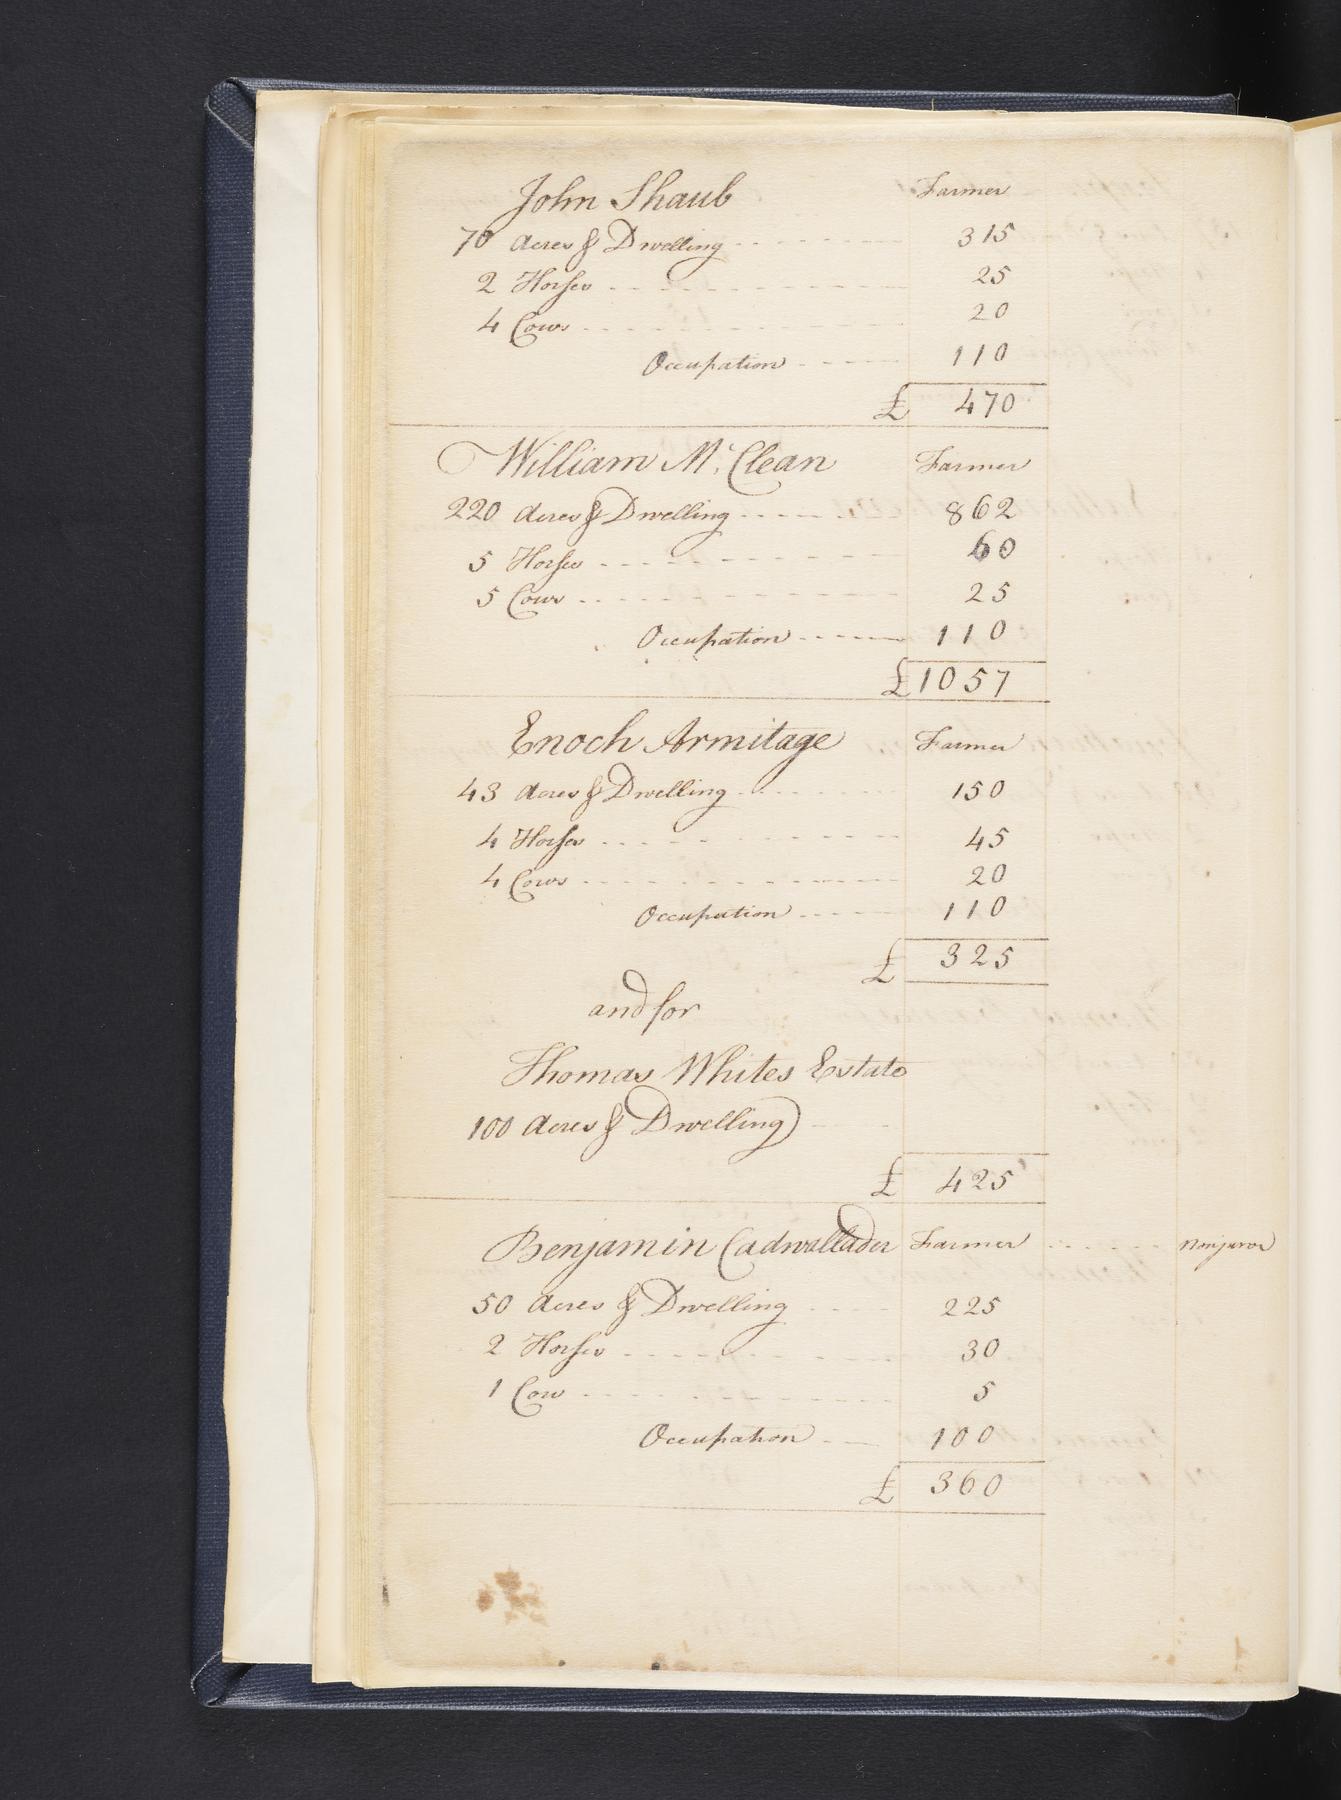 John Shaub Farmer
70 Acres & Dwelling 315
2 Horses 25
4 Cows 20
Occupation 110
£ 470
William McClean Farmer
220 Acres & Dwelling 862
5 Horses 60
5 Cows 25
Occupation 110
£ 1057
Enoch Armitage Farmer
43 Acres & Dwelling 150
4 Horses 45
4 Cows 20
Occupation 110
£ 325
and for
Thomas Whites Estate
100 Acres & Dwelling
£ 425
Benjamin Cadwallader Farmer Nonjuror
50 Acres & Dwelling 225
2 Horses 30
1 Cow 5
Occupation 100
£ 360